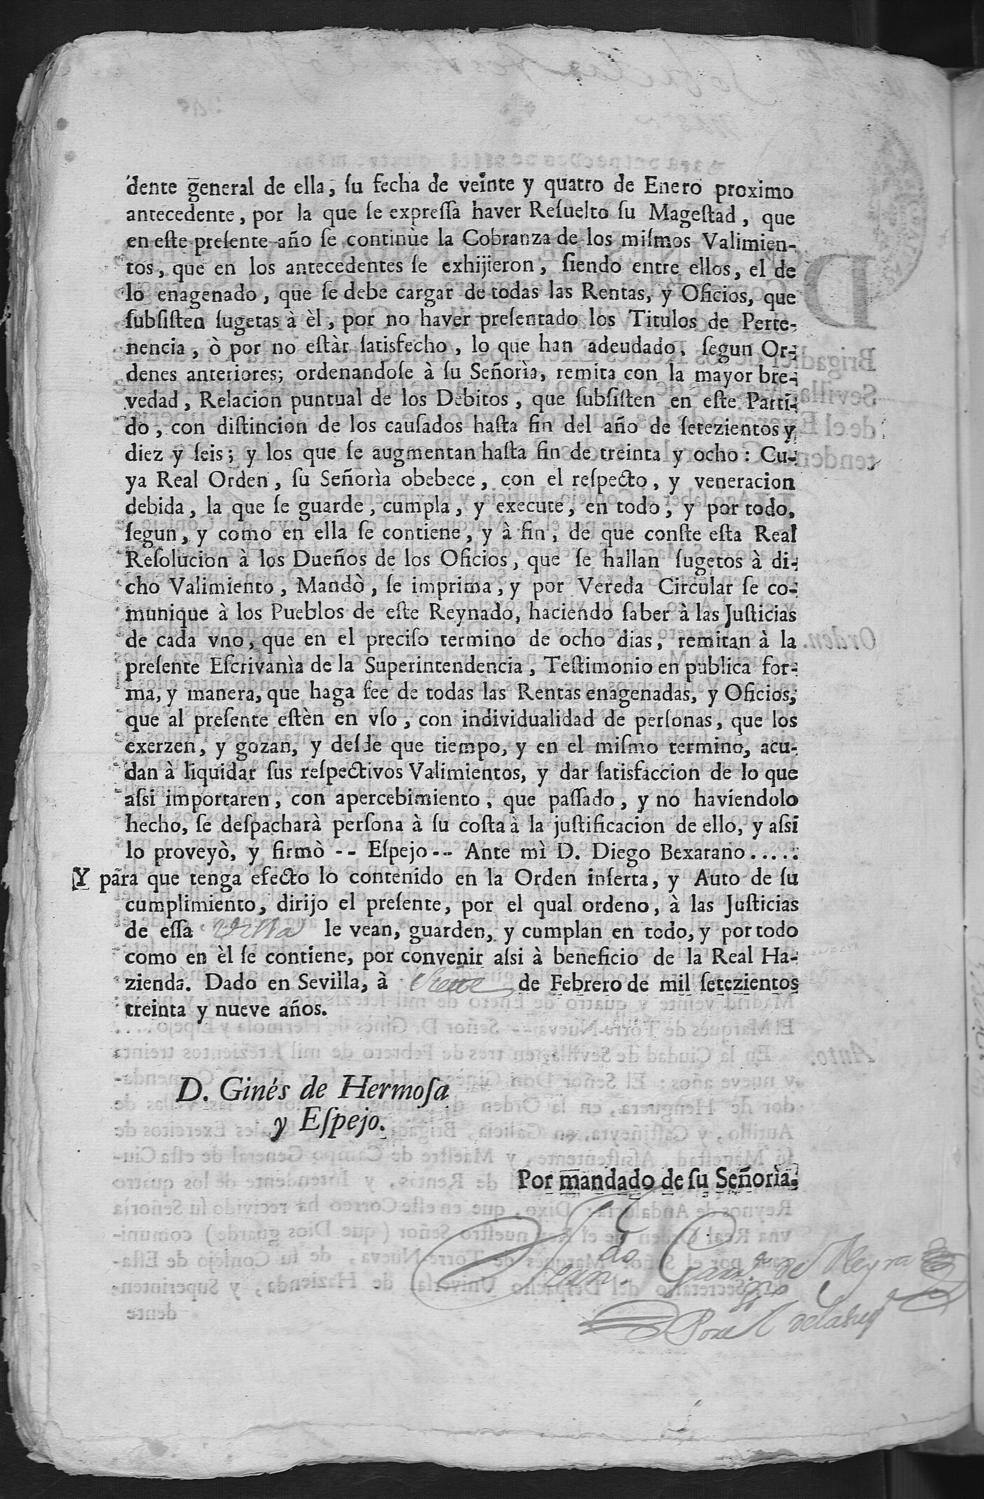 dente general de ella, ſu fecha de veinte y quatro de Enero proximo
antecedente, por la que ſe expreſſa haver Reſuelto ſu Mageſtad, que
en eſte preſente año ſe continùe la Cobranza de los miſmos Valimien-
tos, que en los antecedentes ſe exhijieron, ſiendo entre ellos, el de
lo enagenado, que ſe debe cargar de todas las Rentas, y Oficios, que
ſubſiſten ſugetas à èl, por no haver preſentado los Titulos de Perte-
nencia, ò por no eſtàr ſatisfecho, lo que han adeudado, ſegun Or-
denes anteriores; ordenandoſe à ſu Señorìa, remita con la mayor bre-
vedad, Relacion puntual de los Debitos, que ſubſiſten en eſte Parti-
do, con diſtincion de los cauſados haſta fin del año de ſetezientos y
diez y ſeis; y los que ſe augmentan haſta fin de treinta y ocho: Cu-
ya Real Orden, ſu Señorìa obebece, con el reſpecto, y veneracion
debida, la que ſe guarde, cumpla, y execute, en todo, y por todo,
ſegun, y como en ella ſe contiene, y à fin, de que conſte eſta Real
Reſolucion à los Dueños de los Oficios, que ſe hallan ſugetos à di-
cho Valimiento, Mandò, ſe imprima, y por Vereda Circular ſe co-
munique à los Pueblos de eſte Reynado, haciendo ſaber à las Juſticias
de cada vno, que en el preciſo termino de ocho dias, remitan à la
preſente Eſcrivanìa de la Superintendencia, Teſtimonio en publica for-
ma, y manera, que haga fee de todas las Rentas enagenadas, y Oficios,
que al preſente eſtèn en vſo, con individualidad de perſonas, que los
exerzen, y gozan, y deſde que tiempo, y en el miſmo termino, acu-
dan à liquidar ſus reſpectivos Valimientos, y dar ſatisfaccion de lo que
aſsi importaren, con apercebimiento, que paſſado, y no haviendolo
hecho, ſe deſpacharà perſona à ſu coſta à la juſtificacion de ello, y aſsi
lo proveyò, y firmò -- Eſpejo -- Ante mì D. Diego Bexarano.....
Y para que tenga efecto lo contenido en la Orden inſerta, y Auto de ſu
cumplimiento, dirijo el preſente, por el qual ordeno, à las Juſticias
de eſſa villa le vean, guarden, y cumplan en todo, y por todo
como en èl ſe contiene, por convenir aſsi à beneficio de la Real Ha-
zienda. Dado en Sevilla, à de Febrero de mil ſetezientos
treinta y nueve años.
D. Ginés de Hermoſa
y Eſpejo.
Por mandado de ſu Señorìa.
de Reyna